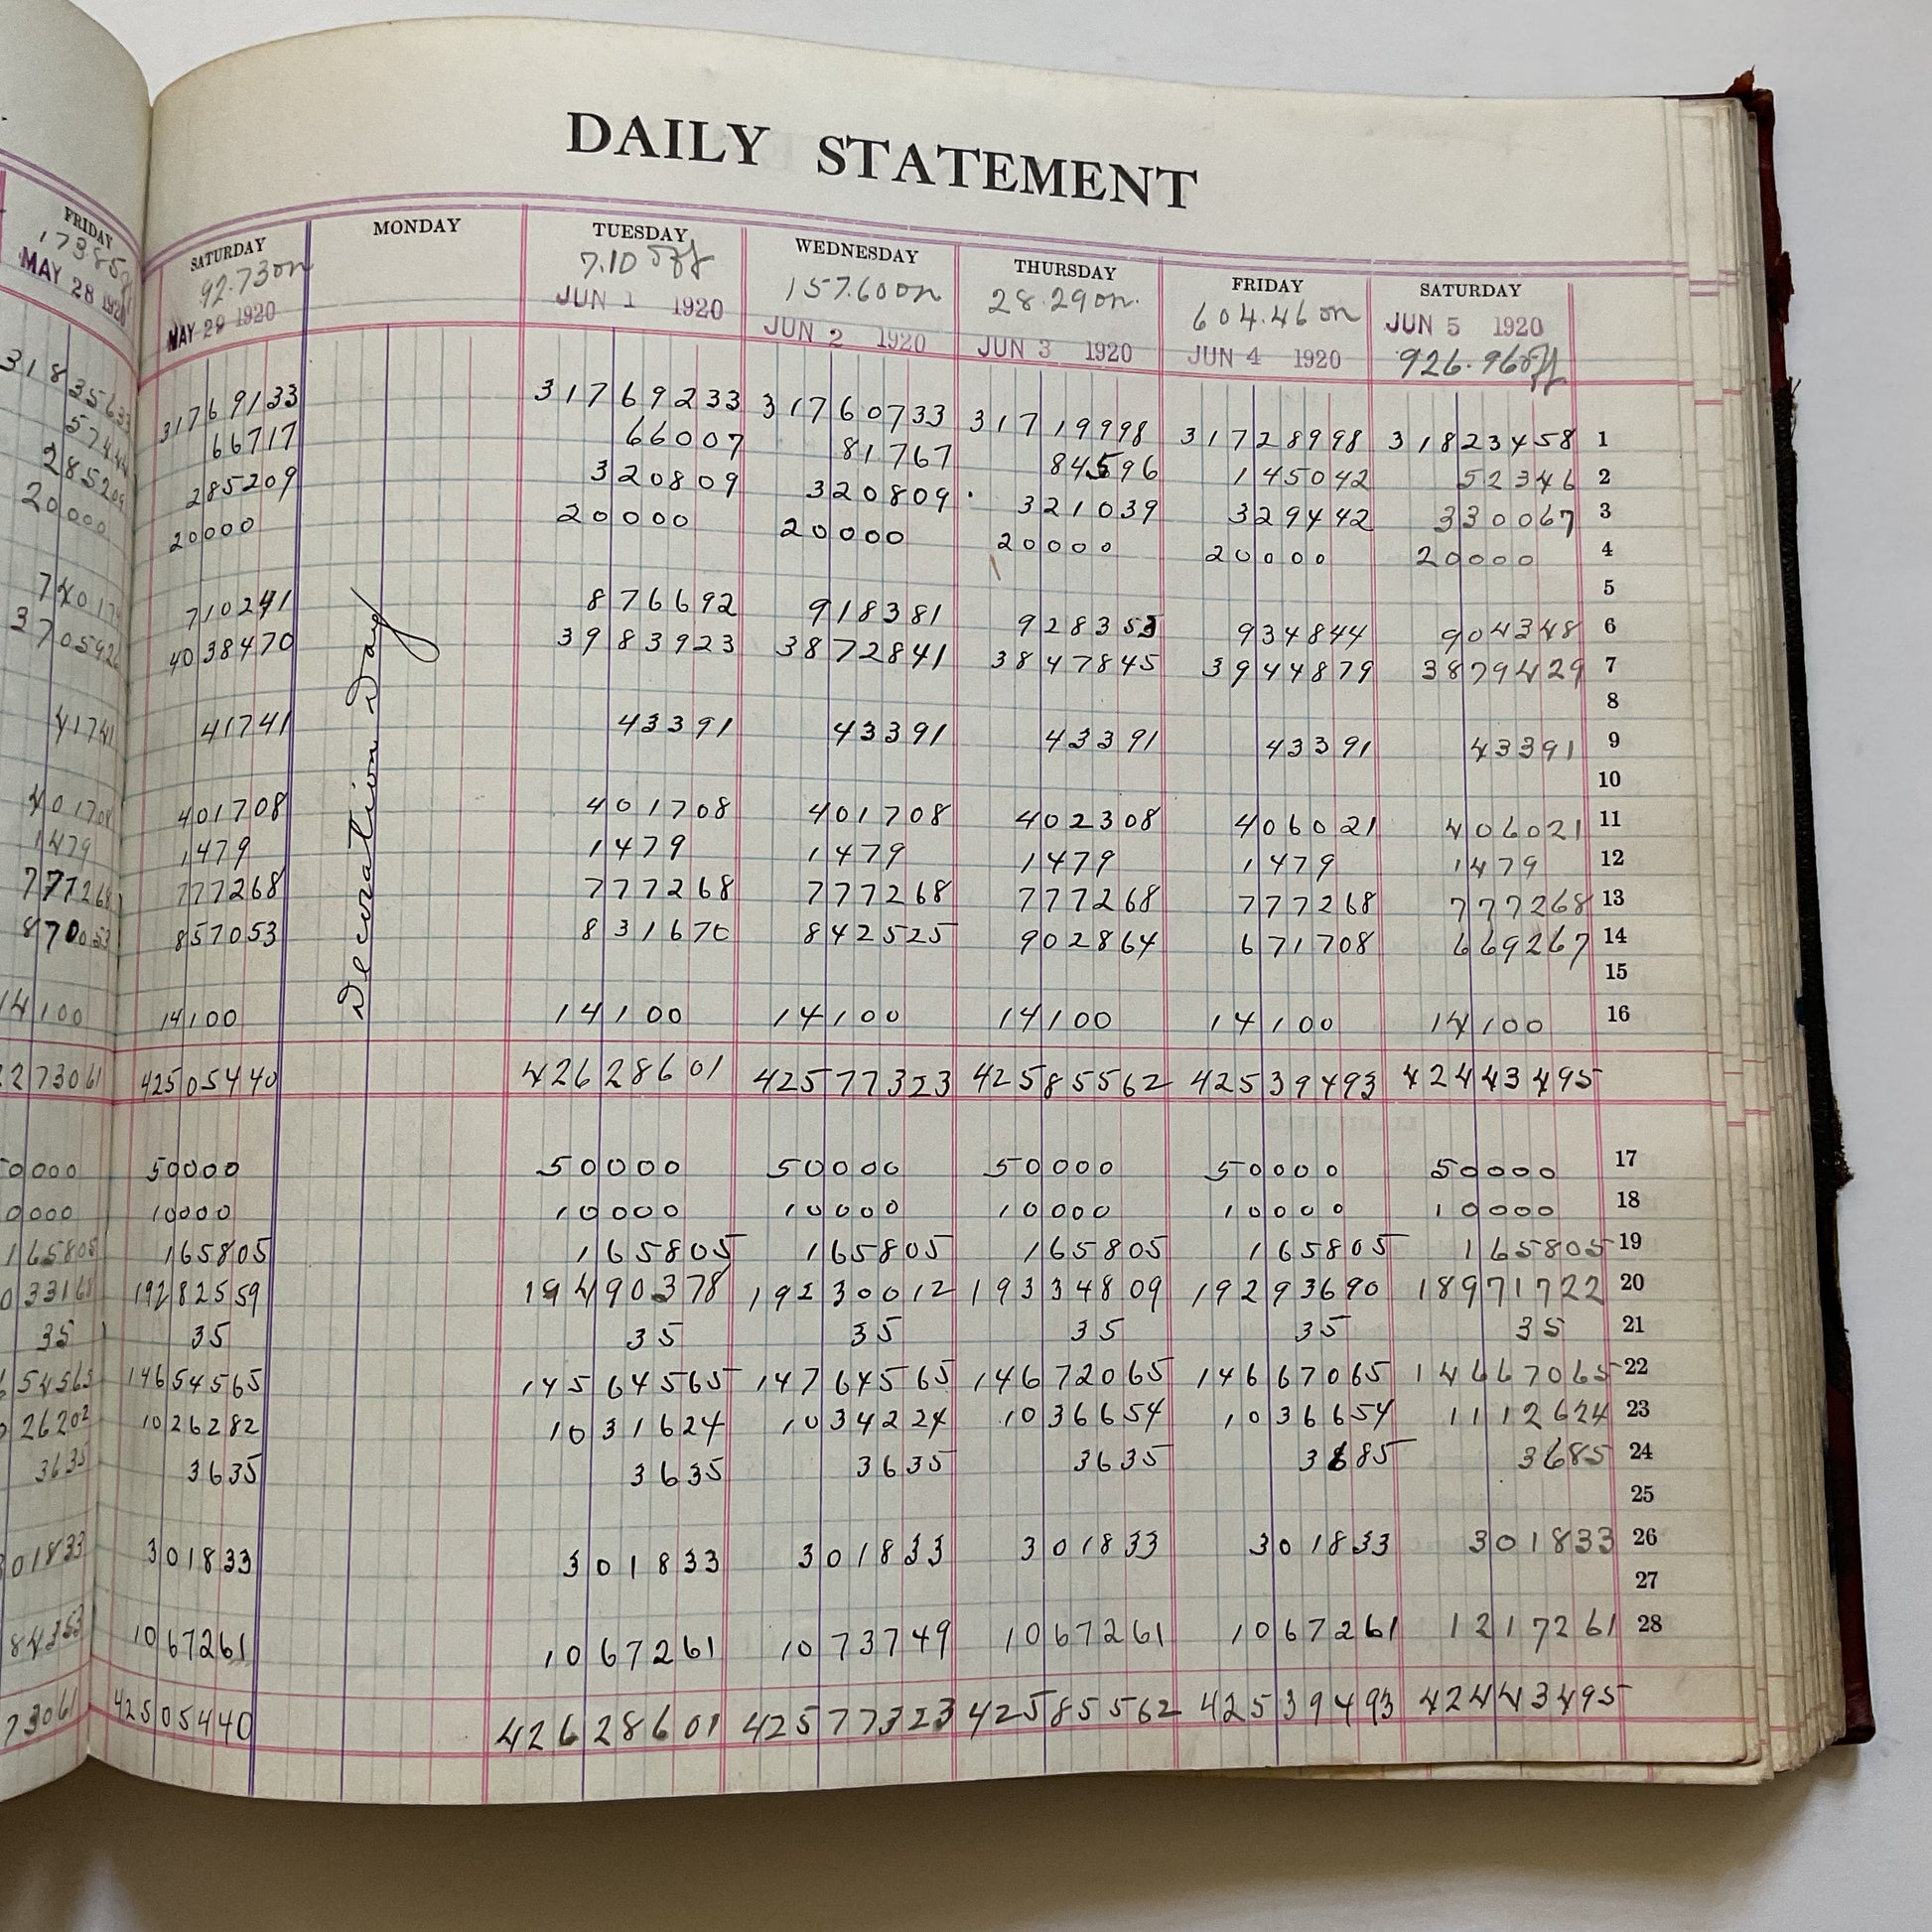 DAILY STATEMENT
FRIDAY SATURDAY MONDAY TUESDAY WEDNESDAY THURSDAY FRIDAY SATURDAY
92.73 on 7.10 off 157.60 on 28.29 on. 604.46 on
MAY 28 1920 MAY 29 1920 JUN 1 1920 JUN 2 1920 JUN 3 1920 JUN 4 1920 JUN 5 1920
926.96 off
31769133 31769233 31760733 31719998 31728998 31823458 1
66717 66007 81767 84596 145042 52346 2
285209 285209 320809 320809 321039 329442 330067 3
20000 20000 20000 20000 20000 20000 20000 4
5
710241 876692 918381 928353 934844 904348 6
4038470 3983923 3872841 3847845 3944879 3879429 7
8
41741 41741 43391 43391 43391 43391 43391 9
Decoration Day
10
401708 401708 401708 401708 402308 406021 406021 11
1479 1479 1479 1479 1479 1479 1479 12
777268 777268 777268 777268 777268 777268 777268 13
870053 857053 831670 842525 902864 671708 669267 14
15
14100 14100 14100 14100 14100 14100 14100 16
2273061 42505440 42628601 42577323 42585562 42539493 42443495
50000 50000 50000 50000 50000 50000 50000 17
0000 10000 10000 10000 10000 10000 10000 18
165805 165805 165805 165805 165805 165805 165805 19
033168 19282559 19490378 19230012 19334809 19293690 18971722 20
35 35 35 35 35 35 35 21
654565 14654565 14564565 14764565 14672065 14667065 14667065 22
26202 1026282 1031624 1034224 1036654 1036654 1112624 23
3635 3635 3635 3635 3635 3685 3685 24
25
301833 301833 301833 301833 301833 301833 301833 26
27
84353 1067261 1067261 1073749 1067261 1067261 1217261 28
73061 42505440 42628601 42577323 42585562 42539493 42443495